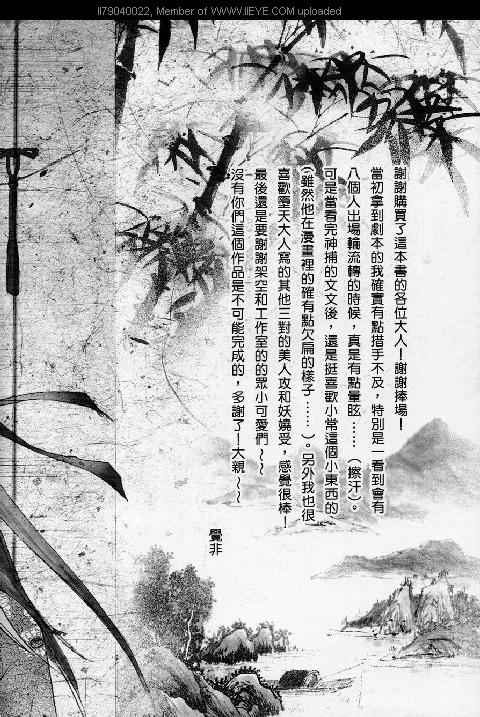 ll79040022, Member of WWW.IIEYE.COM uploaded
謝謝購買了這本書的各位大人！謝謝捧場！
當初拿到劇本的我確實有點措手不及，特別是一看到會有
八個人出場輪流轉的時候，真是有點暈眩……（擦汗）。
可是當看完神捕的文文後，還是挺喜歡小常這個小東西的
（雖然他在漫畫裡的確有點欠扁的樣子……）。另外我也很
喜歡墮天大人寫的其他三對的美人攻和妖嬈受，感覺很棒！
最後還是要謝謝架空和工作室的的眾小可愛們～～
沒有你們這個作品是不可能完成的，多謝了！大親～～
覺非